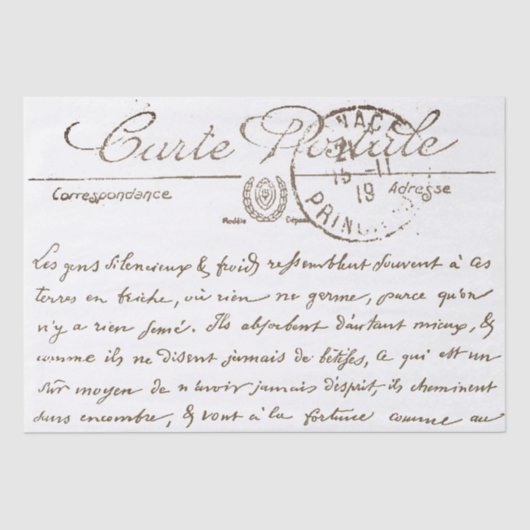 Carte Postale
NACE
15 -11
19
PRINC
Correspondance
Adresse
Modèle Déposé
Les gens silencieux & froids ressemblent souvent à ces
terres en friche, où rien ne germe, parce qu'on
n'y a rien semé. Ils absorbent d'autant mieux, &
comme ils ne disent jamais de bêtises, ce qui est un
sûr moyen de n'avoir jamais d'esprit, ils cheminent
sans encombre, & vont à la fortune comme au